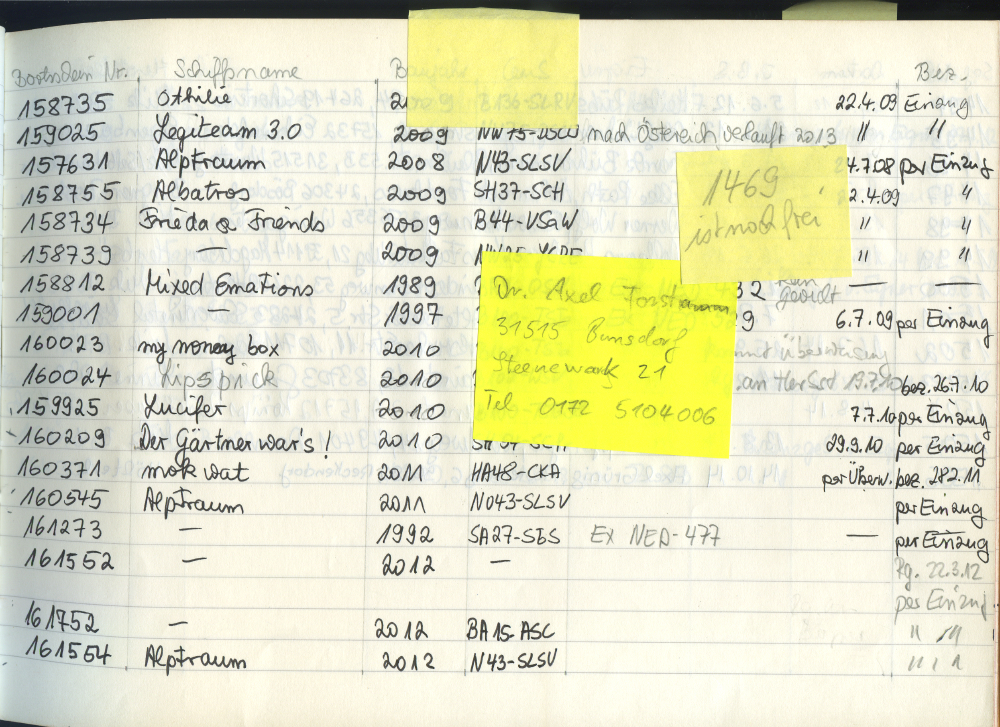 Bootsschein Nr. Schiffsname Bez.
158735 Othilie 22.4.09 Einzug
159025 Legiteam 3.0 2009 NW75-USCU nach Östereich verkauft 2013 " "
157631 Alptraum 2008 N43-SLSV 4.7.08 per Einzug
158755 Albatros 2009 SH37-SCH 2.4.09 "
158734 Frieda & Friends 2009 B44-VSaW " "
158739 — 2009 " "
158812 Mixed Emations 1989 32 —
159001 — 1997 9 6.7.09 per Einzug
160023 my money box 2010
160024 Lipsprick 2010 19.7.10 bez. 26.7.10
159925 Lucifer 2010 7.7.10 per Einzug
160209 Der Gärtner war's! 2010 29.9.10 per Einzug
160371 mok wat 2011 HA48-CKA per Überw. bez. 28.2.11
160545 Alptraum 2011 N043-SLSV per Einzug
161273 — 1992 SA27-SBS Ex NED-477 — per Einzug
161552 — 2012 — Rg. 22.3.12
per Einzug
161752 — 2012 BA15-ASC " "
161554 Alptraum 2012 N43-SLSV " "
1469
ist noch frei
Dr. Axel
31515
Steenewark 21
Tel 0172 5104006